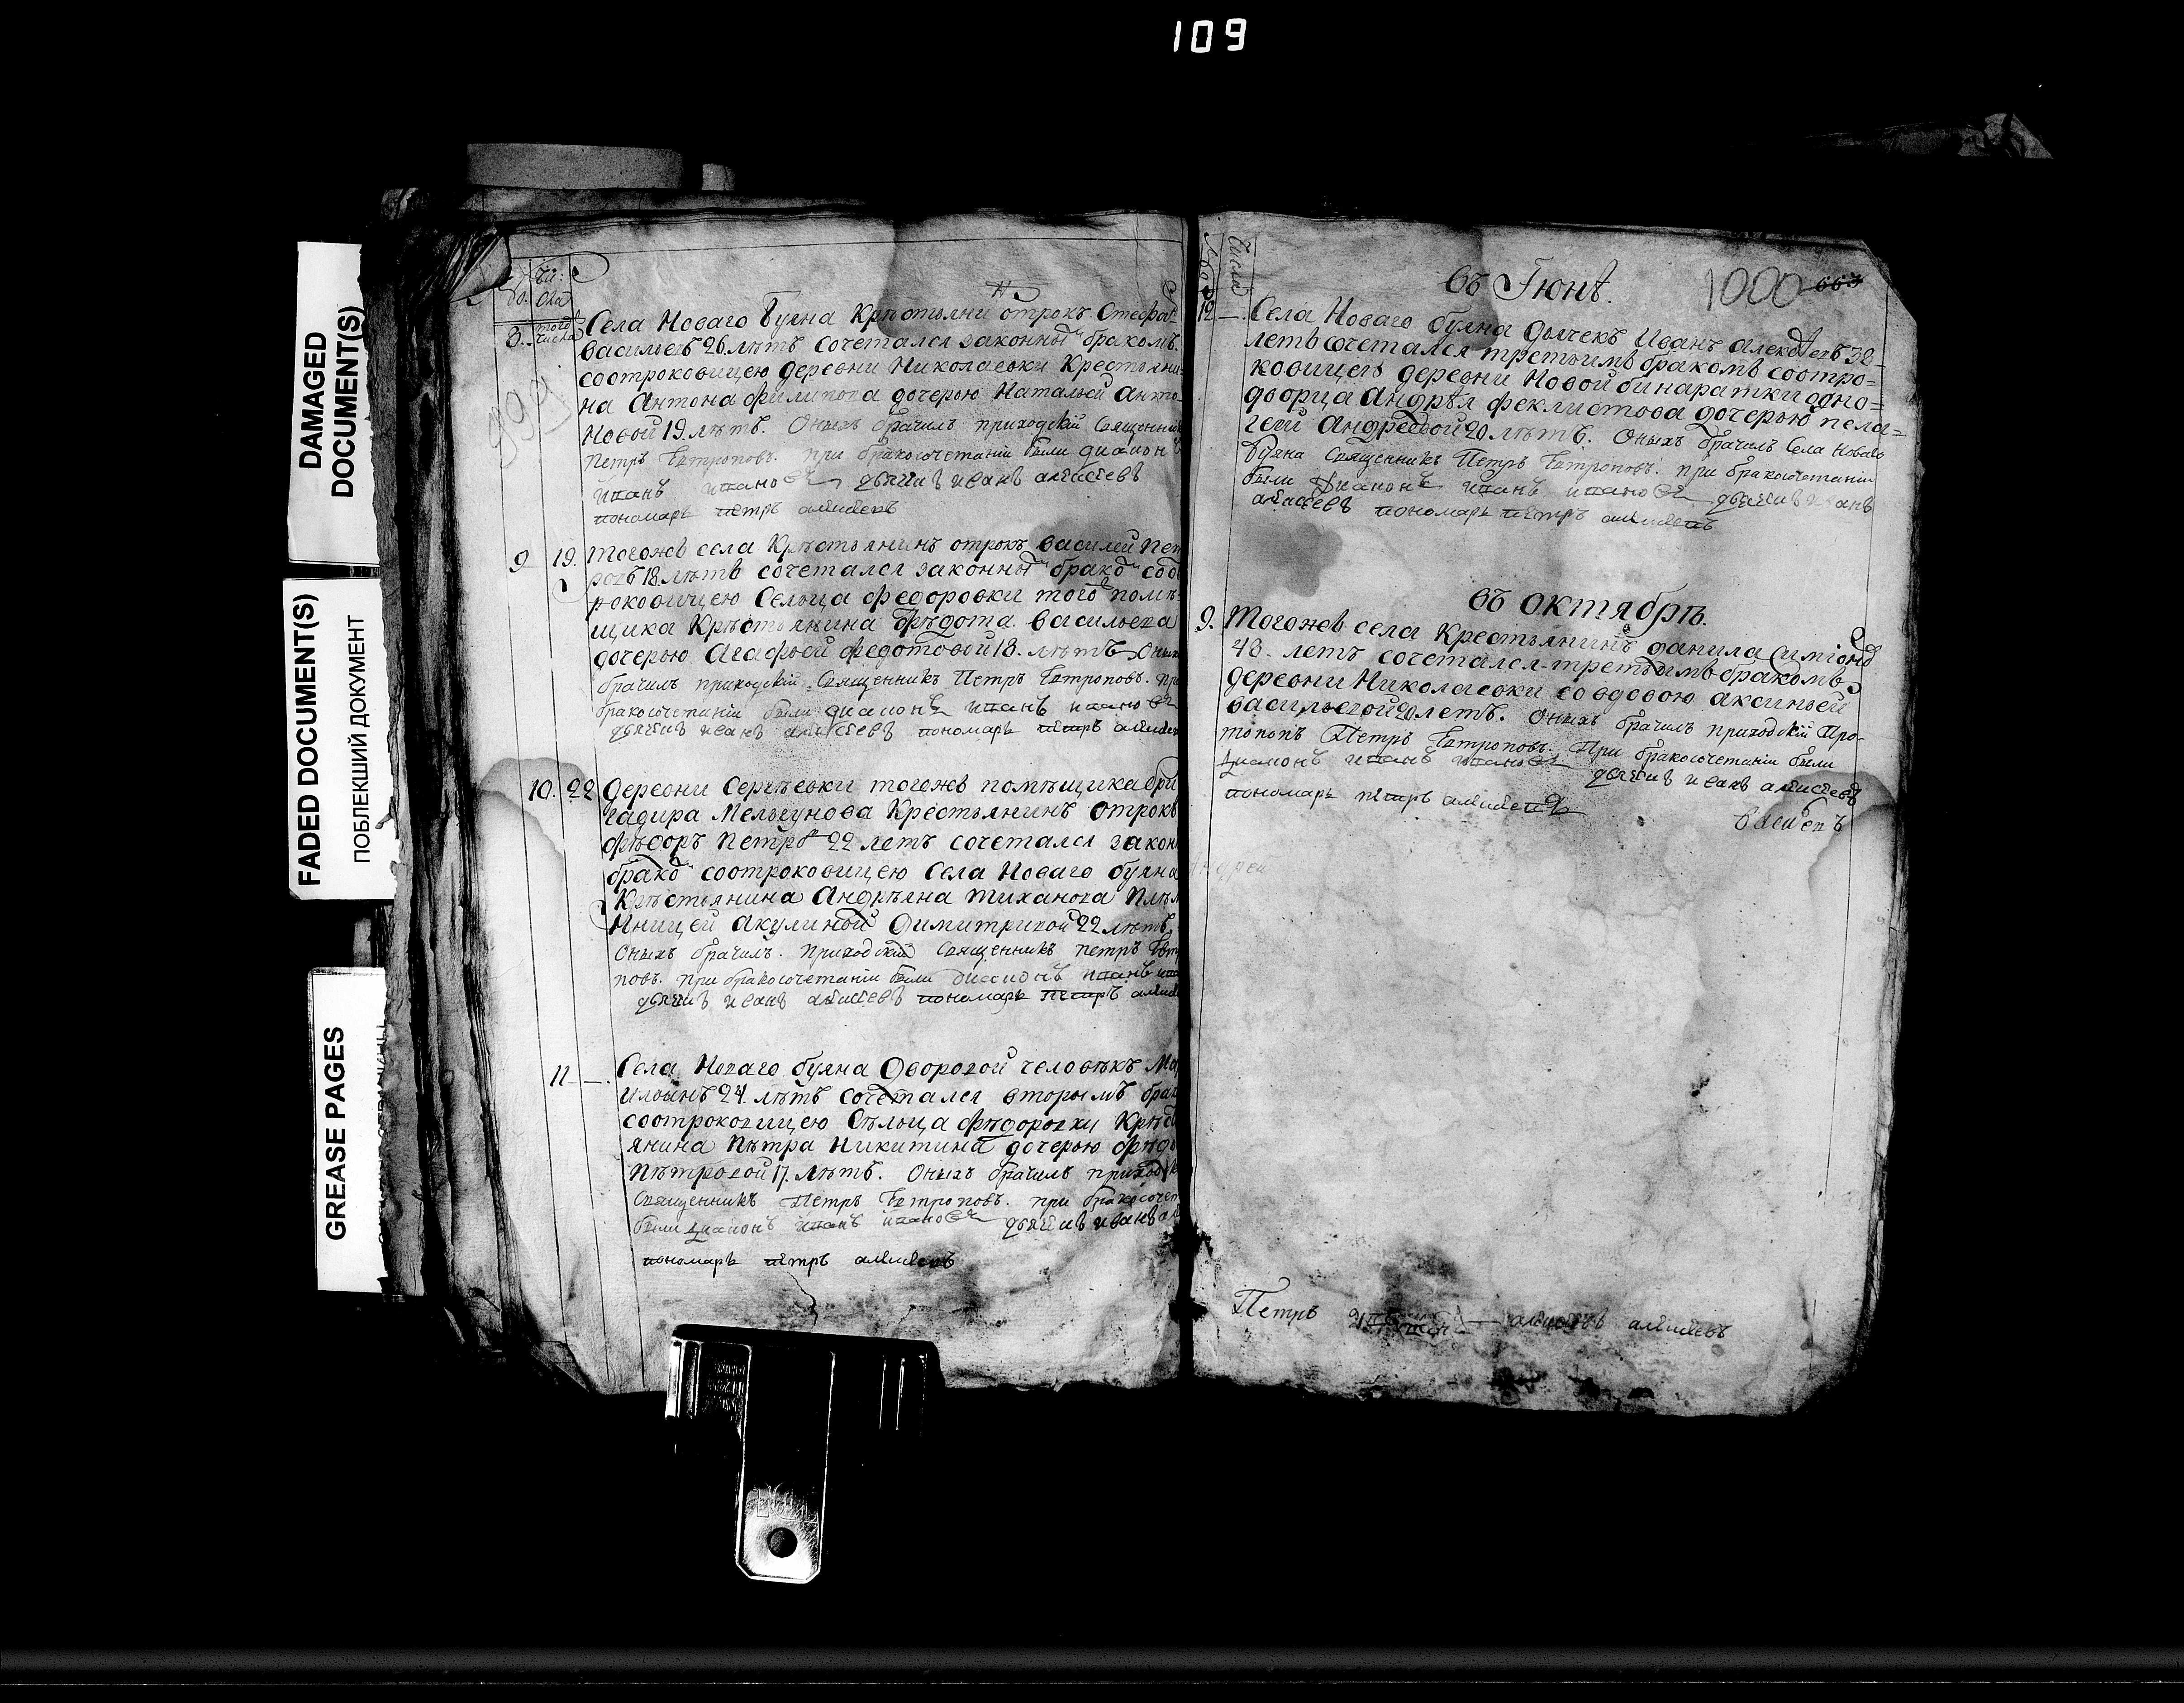 109
DAMAGED
DOCUMENT(S)
FADED DOCUMENT(S)
ПОБЛЕКШИЙ ДОКУМЕНТ
GREASE PAGES
999
8. того числа
Села Новаго Буяна Крѣстьянинъ отрокъ Стефанъ
васильевъ 26. лѣтъ сочетался законнымъ бракомъ.
соотроковицею деревни Николаевки Крестьяни-
на Антона филипова дочерью Натальей Анто-
новой 19. лѣтъ. Оныхъ брачилъ приходскій Священникъ
Петръ Евтроповъ. при бракосочетаніи были диаконъ
иванъ ивановъ дьячекъ иванъ алексѣевъ
пономарь петръ алексеевъ
9 19. тогожъ села Крѣстьянинъ отрокъ василей Пет
ровъ 18. лѣтъ сочетался законнымъ бракомъ соот
роковицею Сельца федоровки того помѣ-
щика Крѣстьянина Фѣдота васильева
дочерью Агафьей федотовой 18. лѣтъ Оныхъ
брачилъ приходскій Священникъ Петръ Евтроповъ. при
бракосочетаніи были диаконъ иванъ ивановъ
дьячекъ иванъ алексѣевъ пономарь петръ алексеев
10. 22 деревни Сергѣевки тогожъ помѣщика бри
гадира Мельгунова Крестьянинъ отрокъ
фѣдоръ Петровъ 22 летъ сочетался закон
бракомъ соотроковицею Села Новаго буяна
Крѣстьянина Андрѣяна тиханова Плѣм
янницей Акулиной Димитриевой 22 лѣтъ.
Оныхъ брачилъ. Приходскій Священникъ петръ Евтро
повъ. при бракосочетаніи были диаконъ иванъ ива
дьячекъ иванъ алексѣевъ пономарь петръ алексе
11 —. Села Новаго буяна Дворовой человѣкъ
Ильинъ 24. лѣтъ сочетался вторымъ брак
соотроковицею Сѣльца фѣдоровки Крѣсть
янина Пѣтра Никитина дочерью фѣдо
Пѣтровой 17. лѣтъ. Оныхъ брачилъ приход
Священникъ Петръ Евтроповъ. при бракосочет
были диаконъ иванъ ивановъ дьячекъ иванъ ал
пономарь петръ алексеевъ
Число
въ Іюнѣ. 1000 663
12 —. Села Новаго буяна дьячекъ Иванъ алексѣевъ 32-
летъ сочетался третьимъ бракомъ соотро-
ковицею деревни Новой бинаратки одно-
дворца Андрѣя феклистова дочерью пела-
геей Андреевой 20 лѣтъ. Оныхъ брачилъ Села Новаго
Буяна Священникъ Петръ Евтроповъ. при бракосочетаніи
были Диаконъ иванъ ивановъ дьячекъ иванъ
алексеевъ пономарь петръ алексеевъ
въ октябрѣ.
9. Тогожъ села Крестьянинъ данила Симіоновъ
43. летъ сочетался третьимъ бракомъ
деревни Николаевки со вдовою аксиньей
васильевой 20 летъ. Оныхъ брачилъ приходскій Про-
топопъ Петръ Евтроповъ. При бракосочетаніи были
Диаконъ иванъ ивановъ дьячекъ иванъ алексѣевъ
пономарь петръ алексеевъ
Петръ алексеевъ